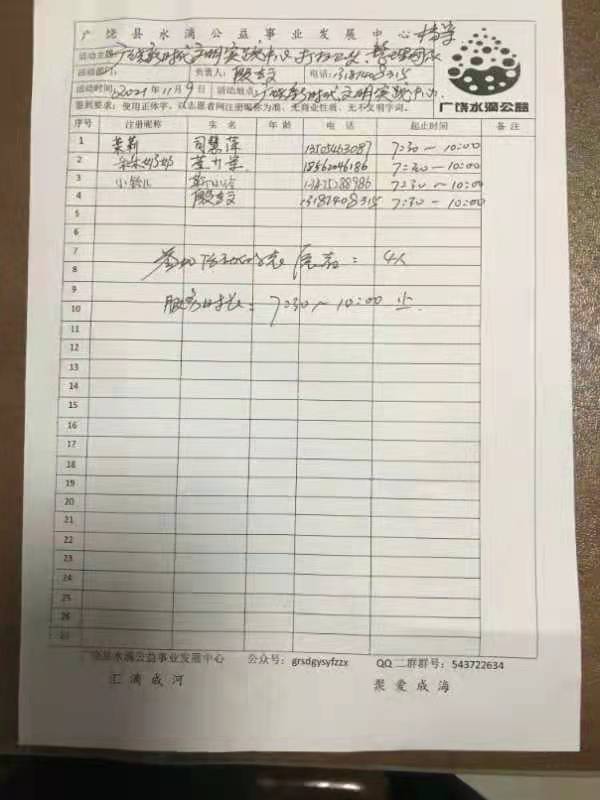 广饶县水滴公益事业发展中心
广饶水滴公益
活动主题:广饶新时代文明实践中心
活动部门: 负责人: 电话:13187408315
活动时间:2021年11月9日 活动地点:广饶新时代文明实践中心
签到要求:使用正体字,以志愿者网注册昵称为准,无商业性质,无不文明字词。
序号 注册昵称 实名 年龄 电话 起止时间 备注
1 茉莉 司慧萍 13505463087 7:30～10:00
2 朵朵奶奶 18562046186 7:30～10:00
3 小铃儿 7:30～10:00
4 13187408315 7:30～10:00
5
6
7 4人
8
9
10 服务时长:7:30～10:00
11
12
13
14
15
16
17
18
19
20
21
22
23
24
25
26
27
广饶县水滴公益事业发展中心 公众号:grsdgysyfzzx QQ二群群号:543722634
汇滴成河 聚爱成海